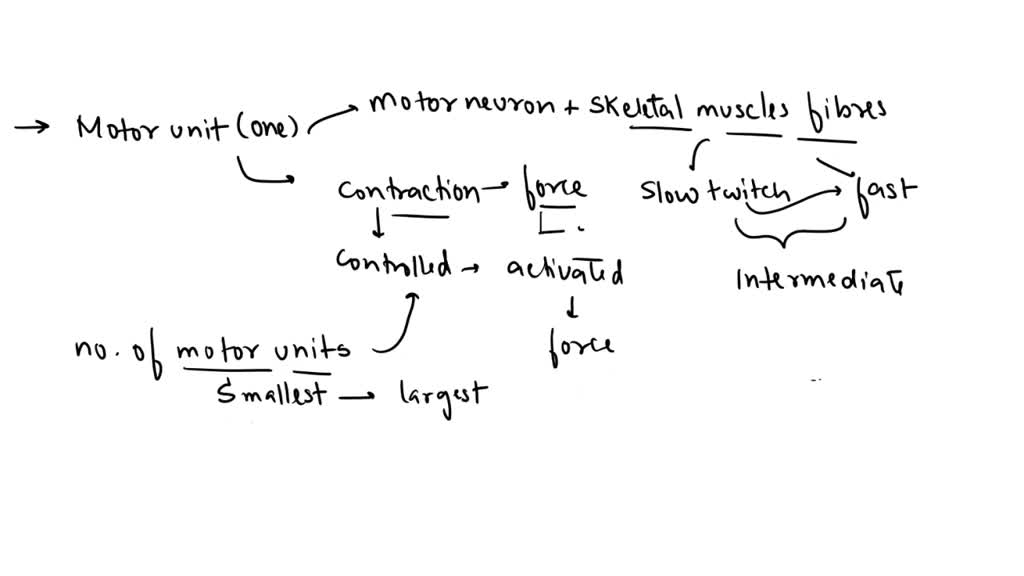 → Motor unit (one) → motor neuron + skeletal muscles fibres
contraction → force slow twitch → fast
controlled → activated Intermediate
no. of motor units force
smallest → largest